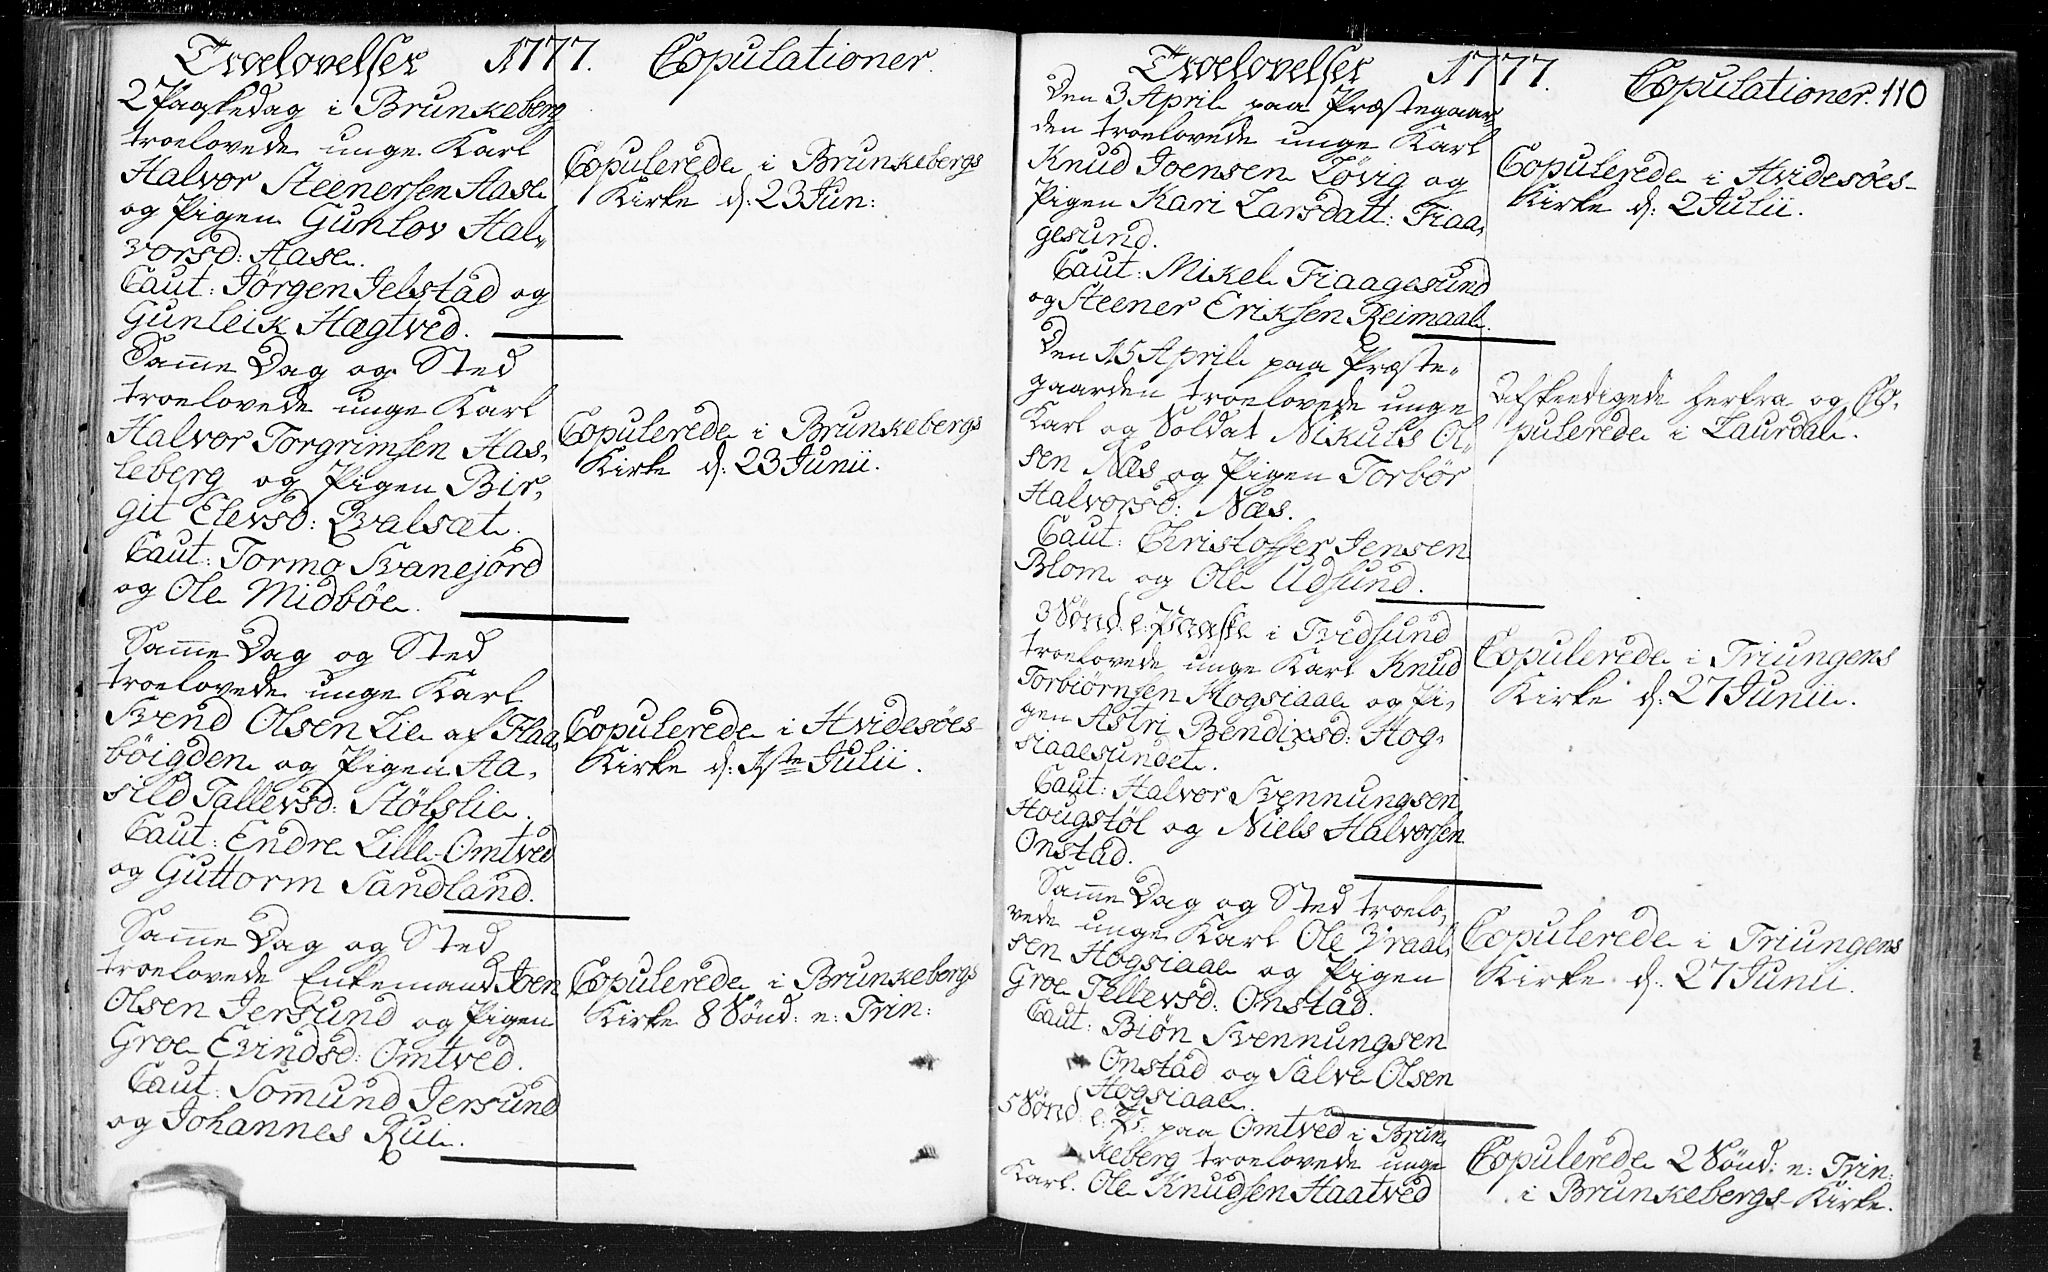 Troelovelser 1777. Copulationer.
2 Paaskedag i Brunkeberg
troelovede unge Karl
Halvor Steenersen Aase
og Pigen Gunlov Hal-
vorsd: Aase.
Caut: Jørgen Jelstad og
Gunleik Hægtved.
Copulerede i Brunkebergs
Kirke d: 23 Jun:
Samme Dag og Sted
troelovede unge Karl
Halvor Torgrimsen Has-
leberg og Pigen Bir-
git Elevsd: Qvalsæt.
Caut: Tormo Svanejord
og Ole Midbøe.
Copulerede i Brunkebergs
Kirke d: 23 Junii.
Samme Dag og Sted
troelovede unge Karl
Svend Olsen Lie af Flaa-
bøigden og Pigen Aa-
sild Tallevsd: Stølslie.
Caut: Endre Lille-Omtved
og Guttorm Sandland.
Copulerede i Hvidesøes-
Kirke d: 1ste Julii.
Samme Dag og Sted
troelovede Enkemand Joen
Olsen Jersund og Pigen
Groe Evindsd: Omtved.
Caut: Somund Jersund
og Johannes Rui.
Copulerede i Brunkebergs
Kirke 8 Sønd: e: Trin:
Troelovelser 1777. Copulationer. 110
Den 3 April paa Præstegaar-
den troelovede unge Karl
Knud Joensen Løvig og
Pigen Kari Larsdatt: Fiaa-
gesund.
Caut: Mikel Fiaagesund
og Steener Eriksen Reimaal.
Copulerede i Hvidesøes-
Kirke d: 2 Julii.
Den 15 April paa Præste-
gaarden troelovede unge
Karl og Soldat Nikuls Ol-
sen Næs og Pigen Torbør
Halvorsd: Næs.
Caut: Christoffer Jensen
Blom og Ole Udsund.
Afskeedigede herfra og Co-
pulerede i Laurdal.
3 Sønd: e: Paaske i Tvedsund
troelovede unge Karl Knud
Torbiørnsen Hogsiaae og Pi-
gen Astri Bendixsd: Hog-
siaaesundet.
Caut: Halvor Svennungsen
Hougstøl og Niels Halvorsen
Onstad.
Copulerede i Triungens
Kirke d: 27 Junii.
Samme Dag og Sted troelo-
vede unge Karl Ole Vraal-
sen Hogsiaae og Pigen
Groe Tellevsd: Onstad.
Caut: Biøn Svennungsen
Onstad og Salve Olsen
Hogsiaae.
Copulerede i Triungens
Kirke d: 27 Junii.
5 Sønd: e: P: paa Omtved i Brun-
keberg troelovede unge
Karl Ole Knudsen Haatved
Copulerede 2 Sønd: e: Trin:
i Brunkebergs-Kirke.